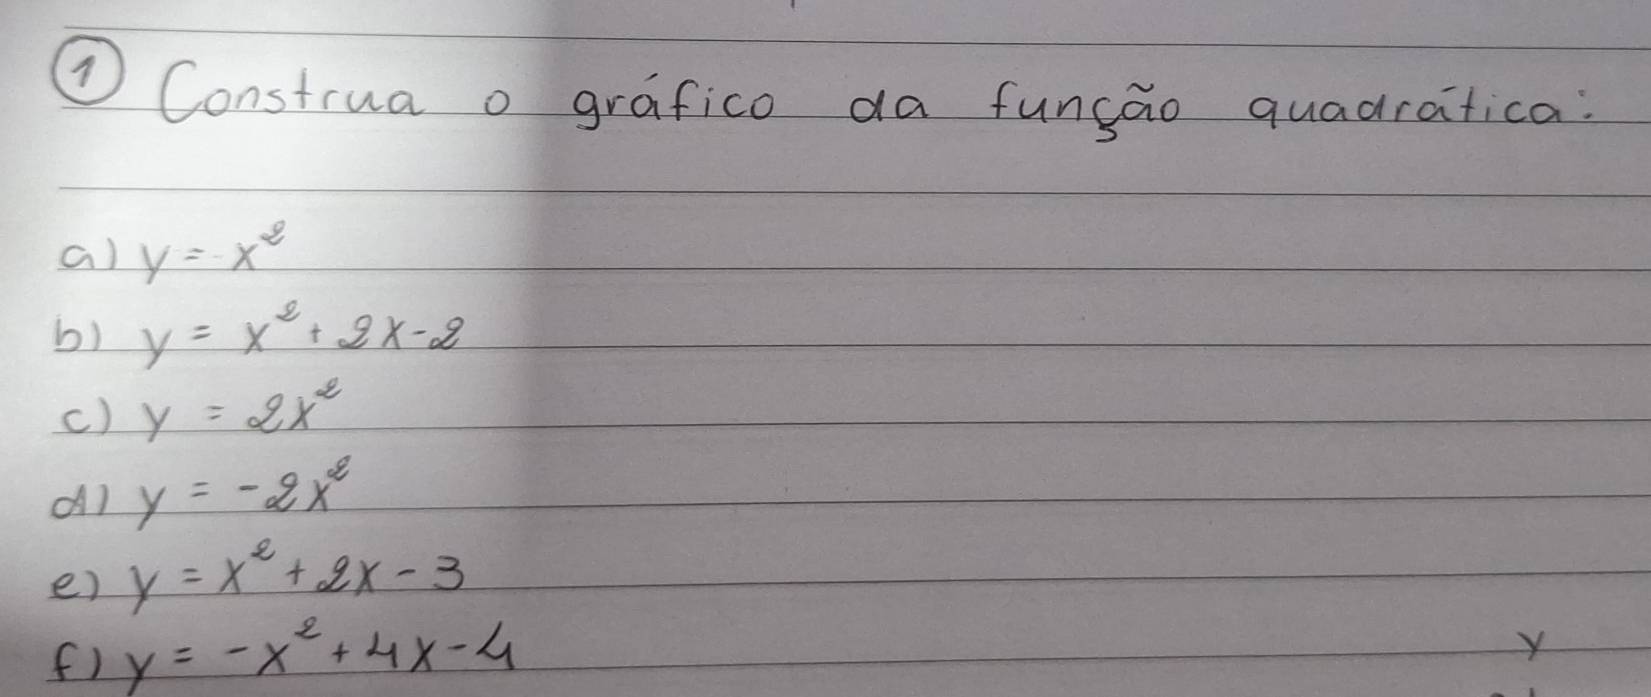 ① Construa o gráfico da função quadrática:
a) y = x²
b) y = x² + 2x - 2
c) y = 2x²
d) y = -2x²
e) y = x² + 2x - 3
f) y = -x² + 4x - 4
y